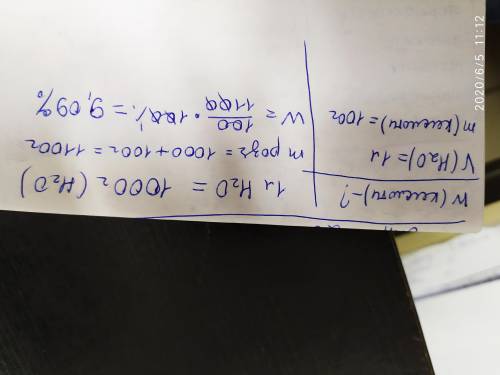 W (кислоти) - ?
V (H2O) = 1л
m (кислоти) = 100г
1л H2O = 1000г (H2O)
m розч = 1000 + 100г = 1100г
W = 100/1100 · 100% = 9,09%
2020/6/5 11:12